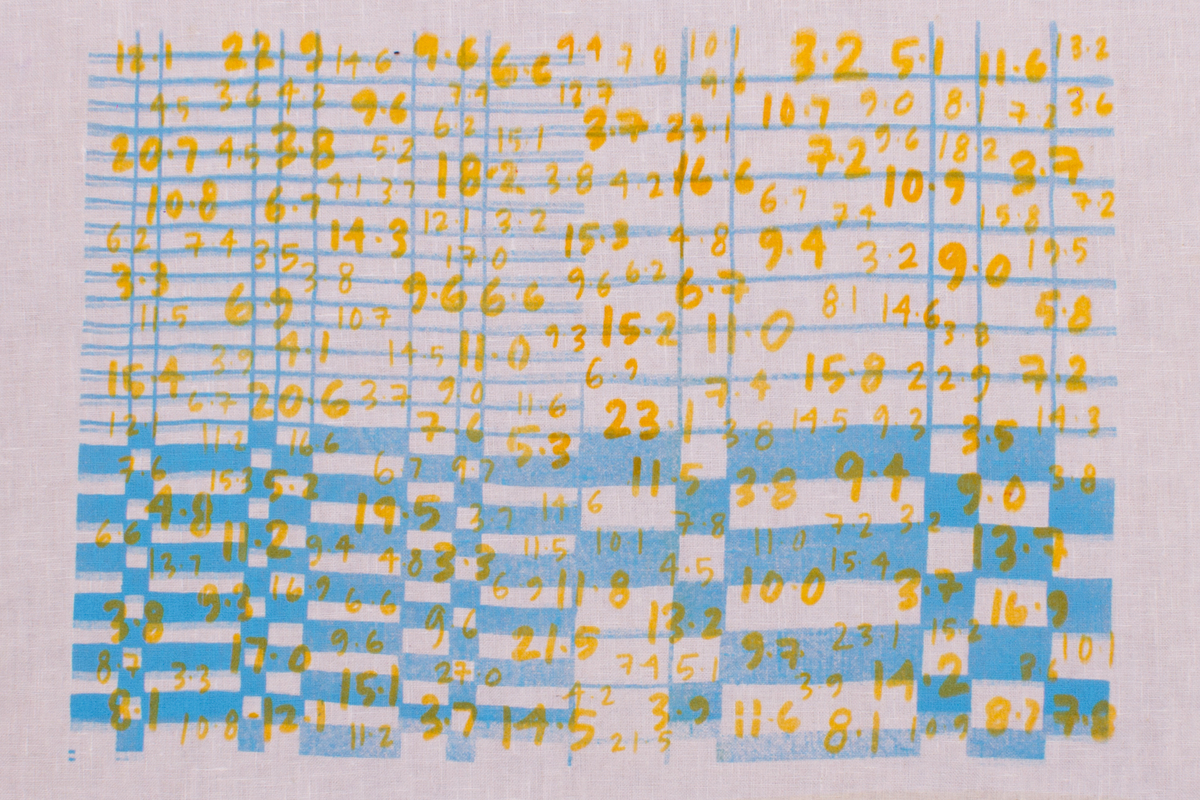 12.1 22.9 14 6 9.6 6.6 9.4 7 8 10 1 3.2 5.1 11.6 13.2
4.5 3 6 4.2 9.6 7.4 12.7 9 6 10.7 9.0 8.1 7 2 3.6
6.2 15.1 3.7 23.1
20.7 4.5 3.8 5.2 7.2 9.6 18 2 3.7
4 1 3.7 18.2 3.8 4.2 16.6 10.9
10.8 6.7 12.1 3.2 6.7 7 4 15.8 7.2
6 2 7 4 3.5 14.3 17.0 15.3 4.8 9.4 3.2 9.0 19.5
3.3 3 8 9.6 6.6 9 6 6.2 6.7
11.5 6.9 10 7 15.2 11.0 8 1 14.6 3 8 5.8
3.9 4.1 14 5 11.0 9 3
15.4 6.9 7.4 15.8 22.9 7.2
6.7 20.6 3.7 9.0 11 6
12.1 7.6 23.1 3 8 14 5 9 3 14 3
11.2 16 6 5.3 3.5
7.6 6 7 9.7 11.5 9.4 3.8
15.3 5.2 3.8 9.0
4.8 19.5 3 7 14 6 7.8 7 2 3 2
6.6 11.2 9 4 11.5 10 1 11 0 13.7
13 7 4 8 3.3 4.5 15.4
16 9 6 9 11.8 10.0 3.7
3.8 9.3 6 6 9 6 13.2 16.9
17.0 9.6 21.5 9.7 23.1 15.2 10 1
8.7 3.3 27.0 7 4 5.1 14.2 3 6
15.1 4 2 3 9
8.1 10 8 12.1 3.7 14.5 3.9 11.6 8.1 10 9 8.7 7.8
11.2 21 5